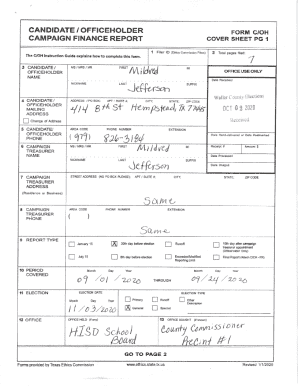 CANDIDATE / OFFICEHOLDER FORM C/OH
CAMPAIGN FINANCE REPORT COVER SHEET PG 1
The C/OH Instruction Guide explains how to complete this form.
1 Filer ID (Ethics Commission Filers)
2 Total pages filed:
7
3 CANDIDATE / OFFICEHOLDER NAME
MS / MRS / MR FIRST MI
Mildred
NICKNAME LAST SUFFIX
Jefferson
OFFICE USE ONLY
Date Received
4 CANDIDATE / OFFICEHOLDER MAILING ADDRESS
Change of Address
ADDRESS / PO BOX; APT / SUITE #; CITY; STATE; ZIP CODE
414 8th St Hempstead, Tx
5 CANDIDATE / OFFICEHOLDER PHONE
AREA CODE PHONE NUMBER EXTENSION
(979) 826-3184
Date Hand-delivered or Date Postmarked
6 CAMPAIGN TREASURER NAME
MS / MRS / MR FIRST MI
Mildred
NICKNAME LAST SUFFIX
Jefferson
Receipt # Amount $
Date Processed
Date Imaged
7 CAMPAIGN TREASURER ADDRESS
(Residence or Business)
STREET ADDRESS (NO PO BOX PLEASE); APT / SUITE #; CITY; STATE; ZIP CODE
Same
8 CAMPAIGN TREASURER PHONE
AREA CODE PHONE NUMBER EXTENSION
( )
Same
9 REPORT TYPE
January 15
X 30th day before election
Runoff
15th day after campaign treasurer appointment (Officeholder Only)
July 15
8th day before election
10 PERIOD COVERED
Month Day Year
09 / 01 / 2020 THROUGH 09 / 24 / 2020
11 ELECTION
ELECTION DATE
Month Day Year
11 / 03 / 2020
ELECTION TYPE
Primary
Runoff
Other Description
X General
Special
12 OFFICE
OFFICE HELD (if any)
HISD School Board
13 OFFICE SOUGHT (if known)
County Commissioner
Precint #1
GO TO PAGE 2
Forms provided by Texas Ethics Commission www.ethics.state.tx.us Revised 1/1/2020